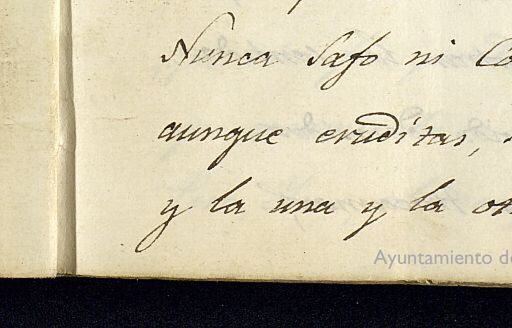 Nunca Safo ni Co
aunque eruditas,
y la una y la ot
Ayuntamiento de